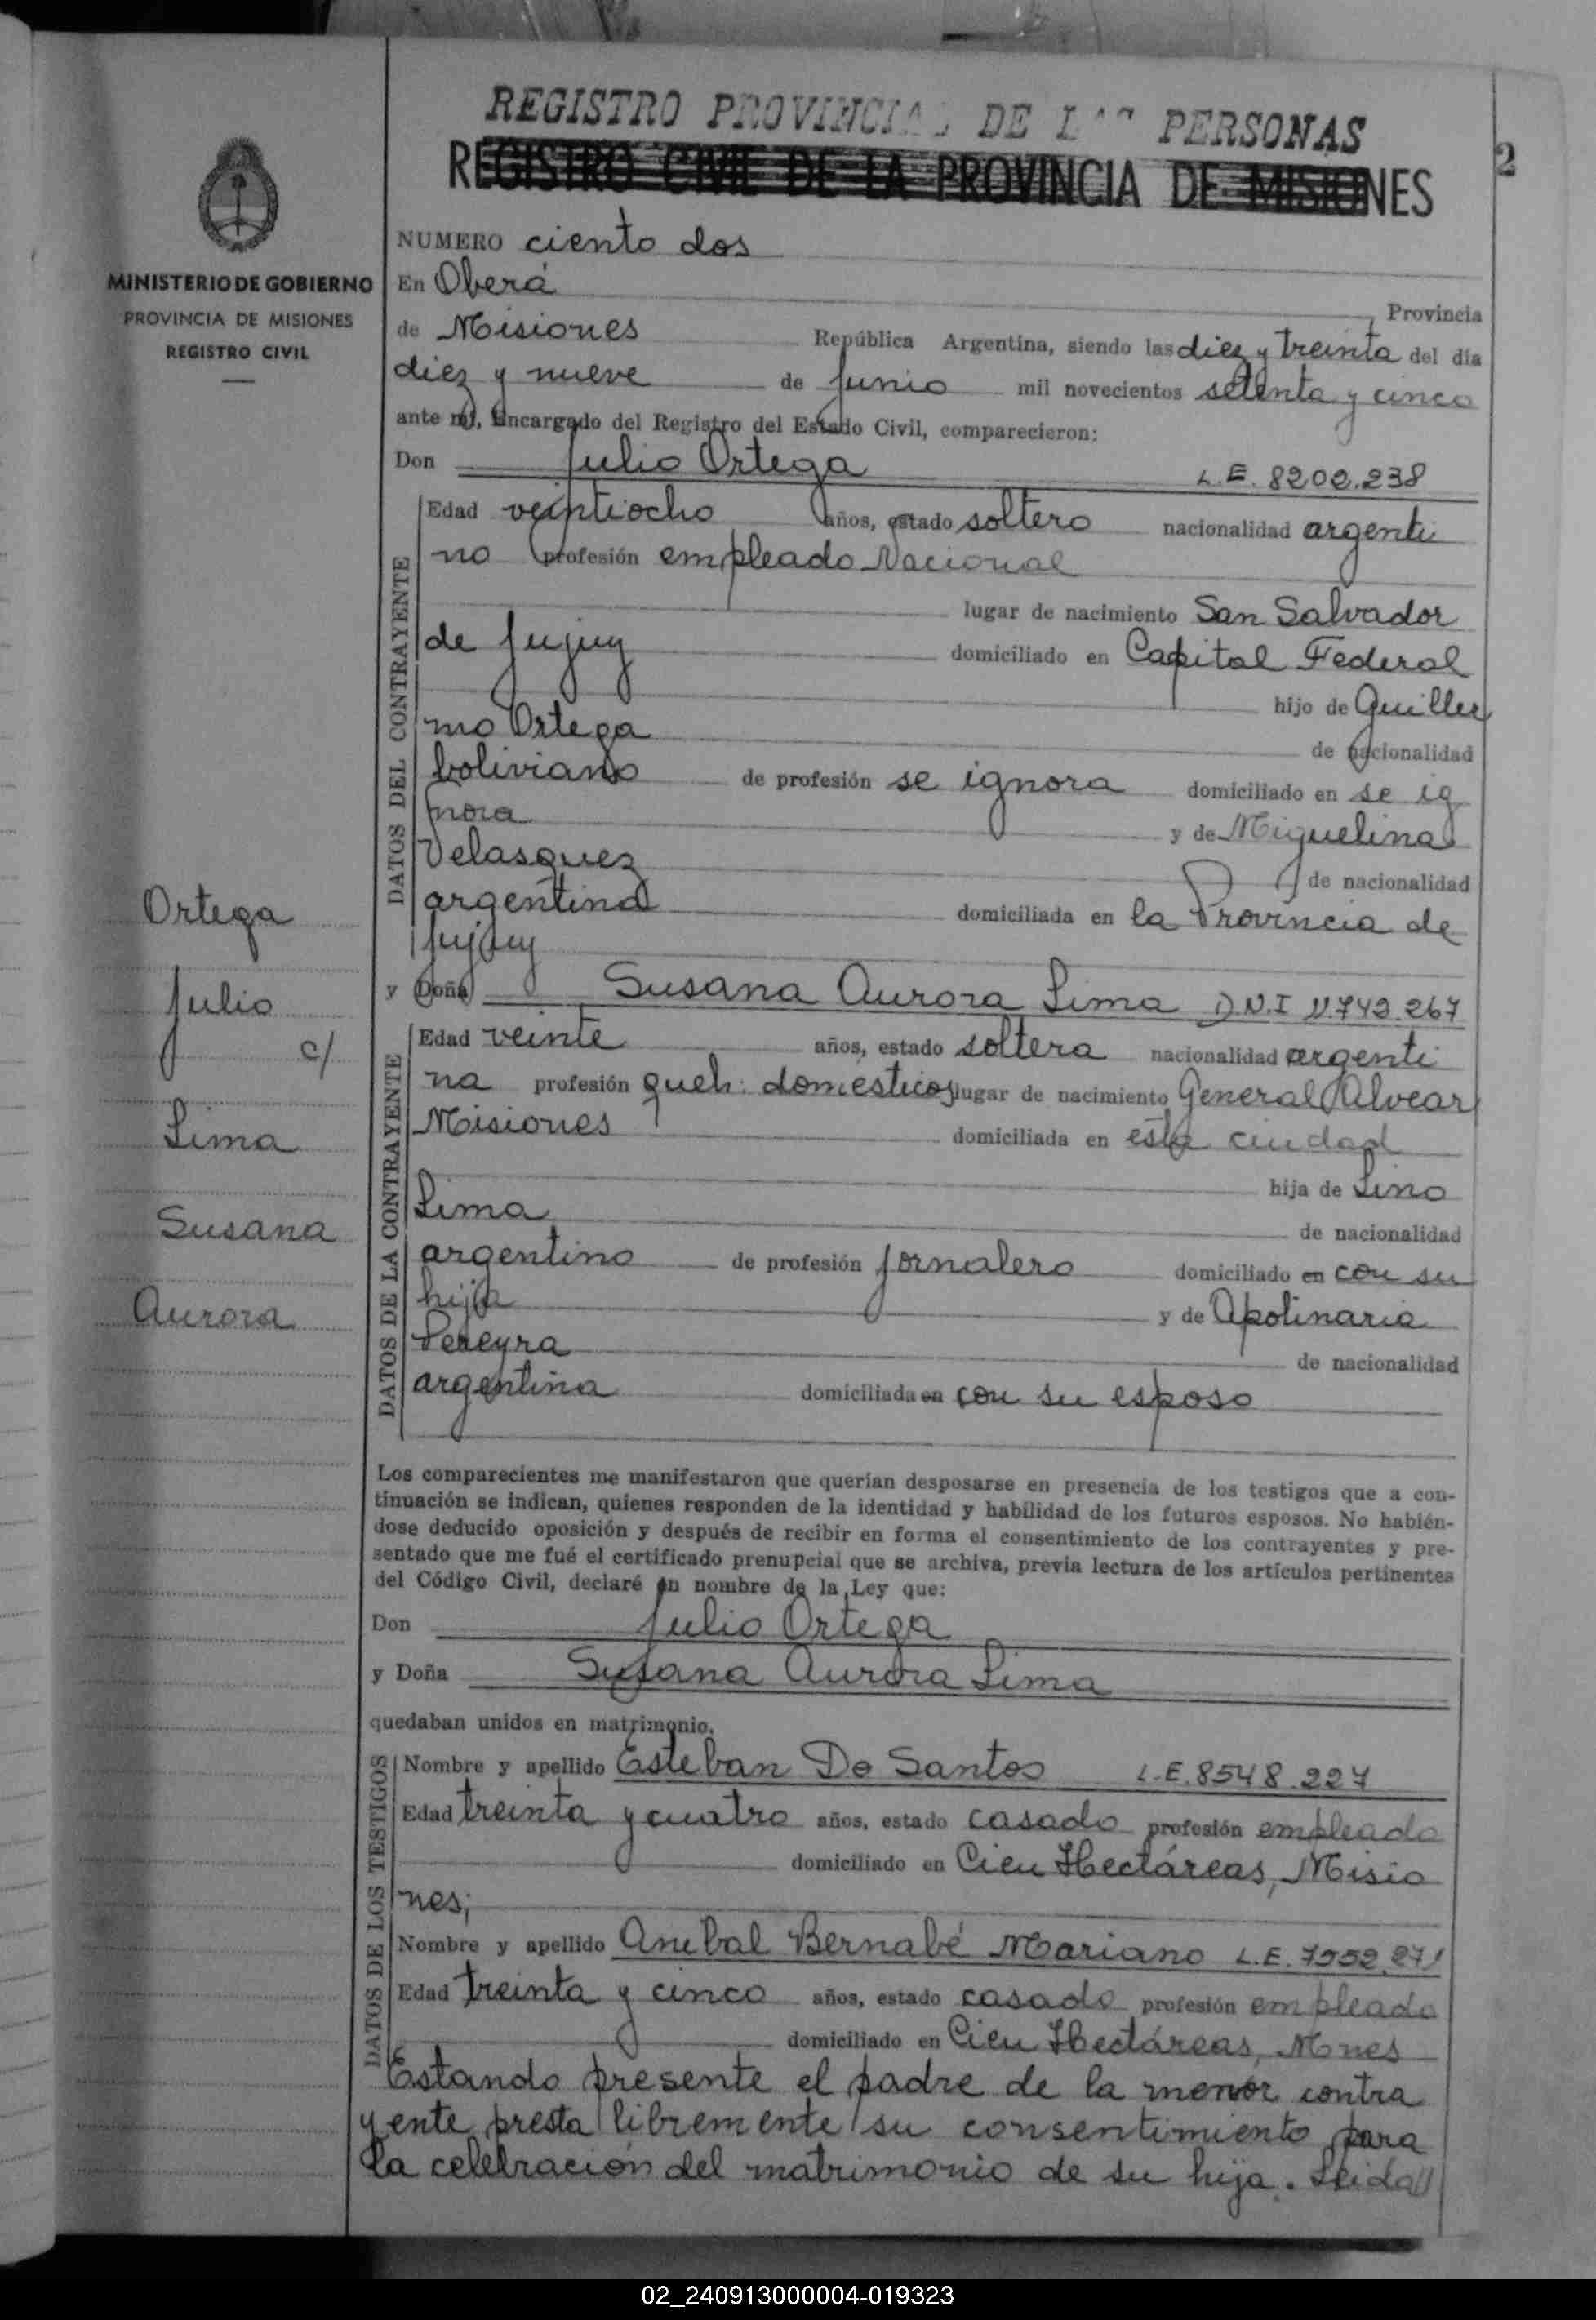 REGISTRO PROVINCIAL DE LAS PERSONAS
REGISTRO CIVIL DE LA PROVINCIA DE MISIONES
2
MINISTERIO DE GOBIERNO
PROVINCIA DE MISIONES
REGISTRO CIVIL
NUMERO ciento dos
En Oberá
Provincia
de Misiones República Argentina, siendo las diez y treinta del día
diez y nueve de junio mil novecientos setenta y cinco
ante mí, Encargado del Registro del Estado Civil, comparecieron:
Don Julio Ortega L.E. 8202.238
DATOS DEL CONTRAYENTE
Edad veintiocho años, estado soltero nacionalidad argenti
no profesión empleado Nacional
lugar de nacimiento San Salvador
de Jujuy domiciliado en Capital Federal
hijo de Guiller
mo Ortega de nacionalidad
boliviano de profesión se ignora domiciliado en se ig
nora y de Miguelina
Velasquez de nacionalidad
argentina domiciliada en la Provincia de
Jujuy
y Doña Susana Aurora Lima D.N.I 11.743.267
DATOS DE LA CONTRAYENTE
Edad veinte años, estado soltera nacionalidad argenti
na profesión queh: domésticos lugar de nacimiento General Alvear
Misiones domiciliada en esta ciudad
hija de Lino
Lima de nacionalidad
argentino de profesión jornalero domiciliado en con su
hija y de Apolinaria
Pereyra de nacionalidad
argentina domiciliada en con su esposo
Los comparecientes me manifestaron que querían desposarse en presencia de los testigos que a con-
tinuación se indican, quienes responden de la identidad y habilidad de los futuros esposos. No habién-
dose deducido oposición y después de recibir en forma el consentimiento de los contrayentes y pre-
sentado que me fué el certificado prenupcial que se archiva, previa lectura de los artículos pertinentes
del Código Civil, declaré en nombre de la Ley que:
Don Julio Ortega
y Doña Susana Aurora Lima
quedaban unidos en matrimonio.
DATOS DE LOS TESTIGOS
Nombre y apellido Esteban Do Santos L.E. 8548.227
Edad treinta y cuatro años, estado casado profesión empleado
domiciliado en Cien Hectáreas, Misio
nes;
Nombre y apellido Anebal Bernabé Mariano L.E.
Edad treinta y cinco años, estado casado profesión empleado
domiciliado en Cien Hectáreas, Mnes
Estando presente el padre de la menor contra
yente presta libremente su consentimiento para
la celebración del matrimonio de su hija. Leida
Ortega
Julio
c/
Lima
Susana
Aurora
02_240913000004-019323